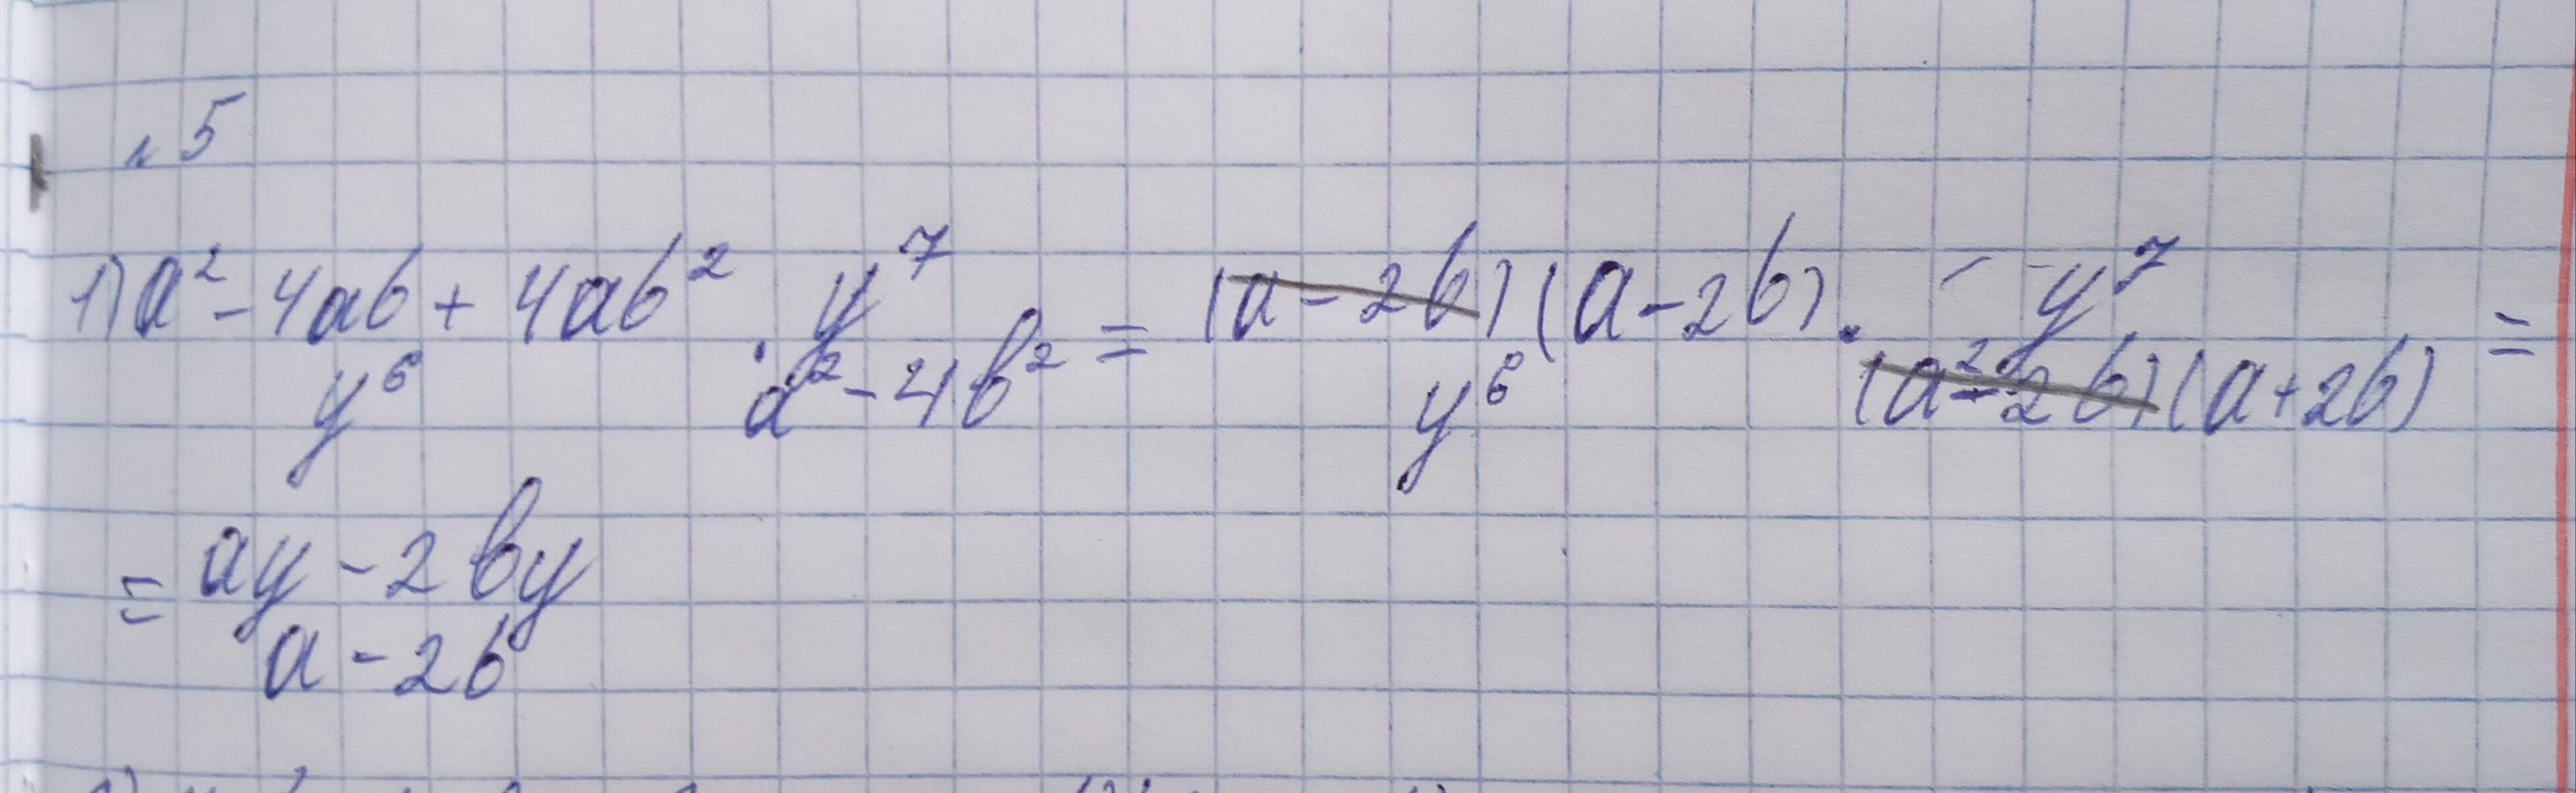 №5
1) a² - 4ab + 4ab² / y⁶ · y⁷ / a² - 4b² = (a - 2b)(a - 2b) / y⁶ · y⁷ / (a² - 2b)(a + 2b) =
= ay - 2by / a - 2b